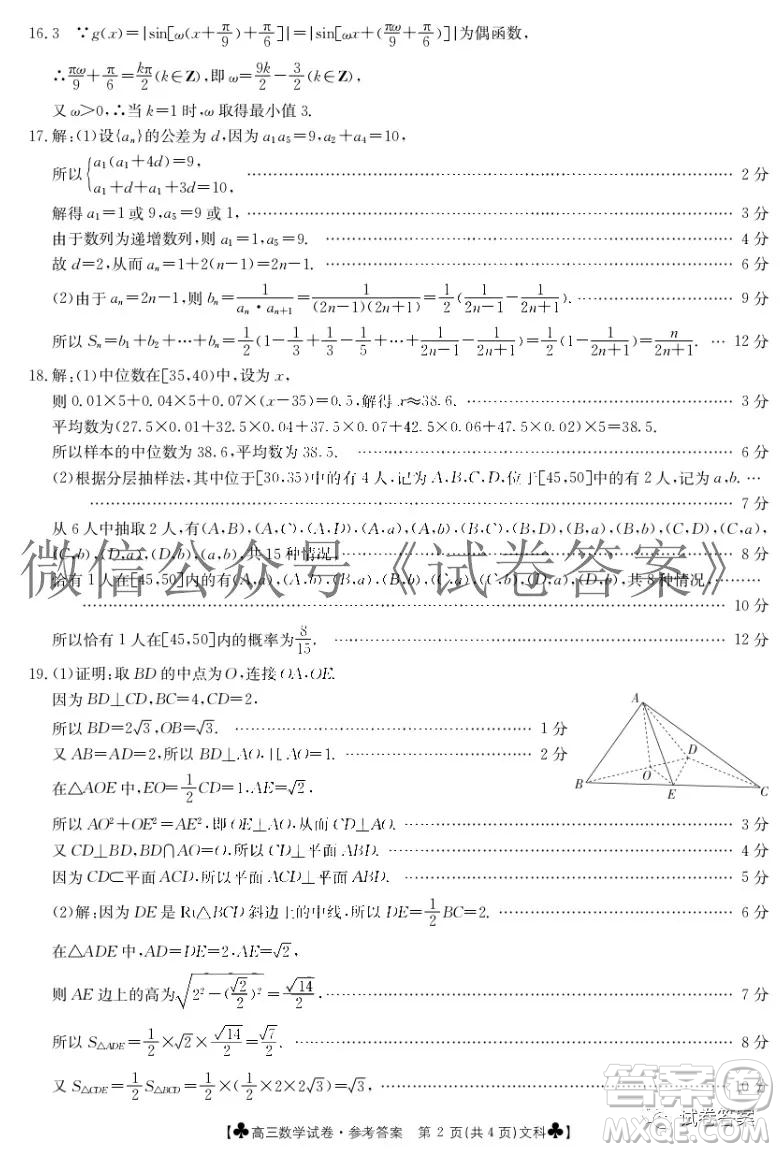 16.3 ∵g(x)=|sin[ω(x+π/9)+π/6]|=|sin[ωx+(πω/9+π/6)]|为偶函数,
∴πω/9+π/6=kπ/2(k∈Z),即ω=9k/2-3/2(k∈Z),
又ω>0,∴当k=1时,ω取得最小值3.
17.解:(1)设{aₙ}的公差为d,因为a₁a₅=9,a₂+a₄=10,
所以{a₁(a₁+4d)=9, a₁+d+a₁+3d=10, ………… 2分
解得a₁=1或9,a₅=9或1, ………… 3分
由于数列为递增数列,则a₁=1,a₅=9. ………… 4分
故d=2,从而aₙ=1+2(n-1)=2n-1. ………… 6分
(2)由于aₙ=2n-1,则bₙ=1/(aₙ·aₙ₊₁)=1/((2n-1)(2n+1))=1/2(1/(2n-1)-1/(2n+1)). ………… 9分
所以Sₙ=b₁+b₂+…+bₙ=1/2(1-1/3+1/3-1/5+…+1/(2n-1)-1/(2n+1))=1/2(1-1/(2n+1))=n/(2n+1). … 12分
18.解:(1)中位数在[35,40)中,设为x,
则0.01×5+0.04×5+0.07×(x-35)=0.5,解得x≈38.6. ………… 3分
平均数为(27.5×0.01+32.5×0.04+37.5×0.07+42.5×0.06+47.5×0.02)×5=38.5.
所以样本的中位数为38.6,平均数为38.5. ………… 6分
(2)根据分层抽样法,其中位于[30,35)中的有4人,记为A,B,C,D,位于[45,50]中的有2人,记为a,b. …
………… 7分
从6人中抽取2人,有(A,B),(A,C),(A,D),(A,a),(A,b),(B,C),(B,D),(B,a),(B,b),(C,D),(C,a),
(C,b),(D,a),(D,b),(a,b),共15种情况, ………… 8分
恰有1人在[45,50]内的有(A,a),(A,b),(B,a),(B,b),(C,a),(C,b),(D,a),(D,b),共8种情况, …………
………… 10分
微信公众号《试卷答案》
所以恰有1人在[45,50]内的概率为8/15. ………… 12分
19.(1)证明:取BD的中点为O,连接OA,OE.
因为BD⊥CD,BC=4,CD=2,
所以BD=2√3,OB=√3. ………… 1分
又AB=AD=2,所以BD⊥AO,且AO=1. ………… 2分
在△AOE中,EO=1/2CD=1,AE=√2,
所以AO²+OE²=AE²,即OE⊥AO,从而CD⊥AO. ………… 3分
又CD⊥BD,BD∩AO=O,所以CD⊥平面ABD. ………… 4分
因为CD⊂平面ACD,所以平面ACD⊥平面ABD. ………… 5分
A
D
O
B
E
C
(2)解:因为DE是Rt△BCD斜边上的中线,所以DE=1/2BC=2. ………… 6分
在△ADE中,AD=DE=2,AE=√2,
则AE边上的高为√(2²-(√2/2)²)=√14/2. ………… 7分
所以S△ADE=1/2×√2×√14/2=√7/2. ………… 8分
又S△CDE=1/2S△BCD=1/2×(1/2×2×2√3)=√3, ………… 10分
【♣高三数学试卷·参考答案 第2页(共4页)文科♣】
试卷答案
作业帮